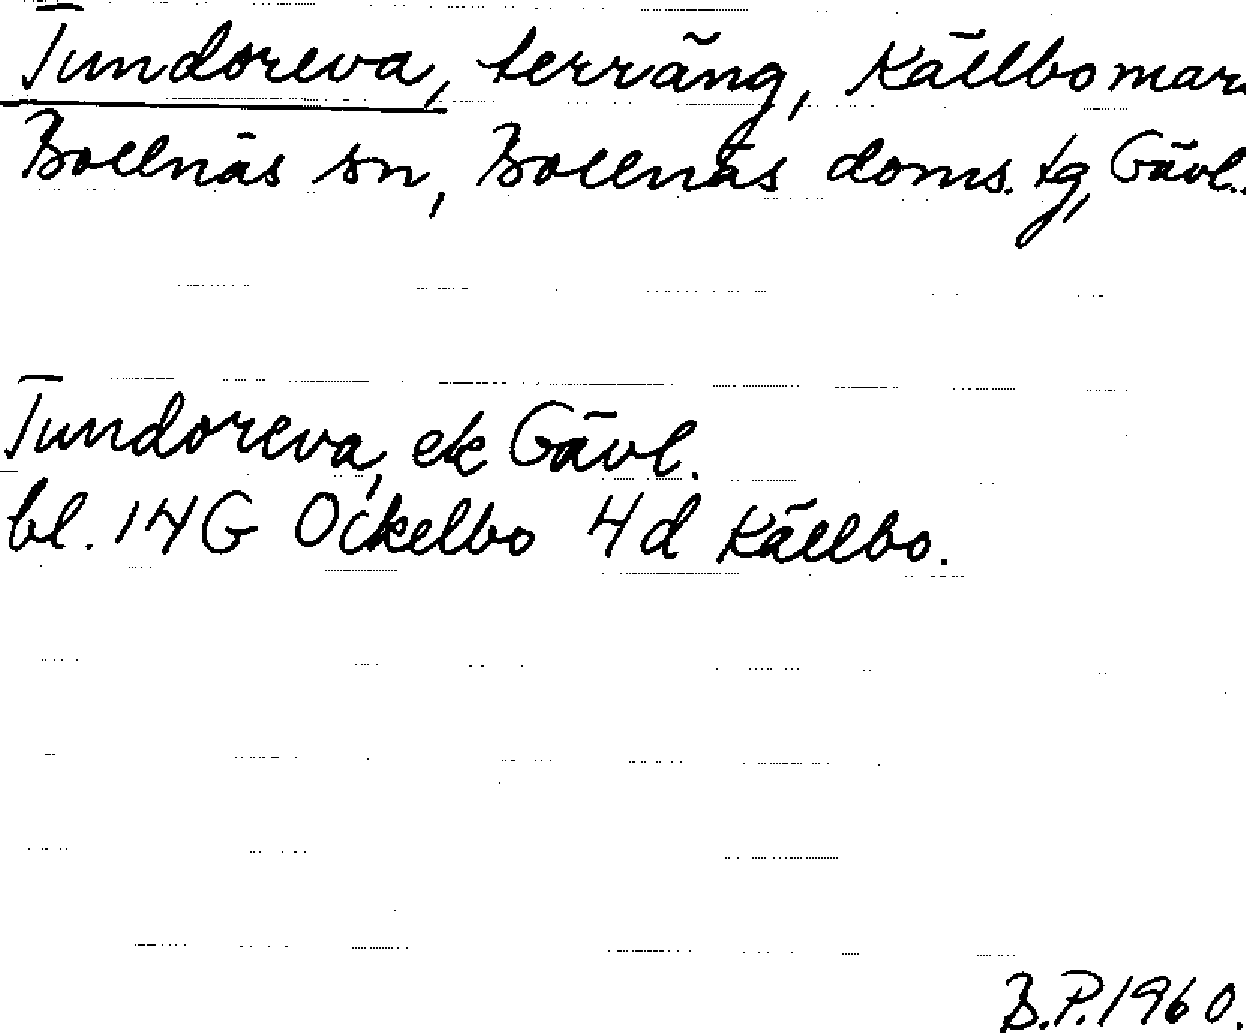 Tundoreva, terräng, Källbo mar
Bollnäs sn, Bollnäs doms. tg, Gävl.
Tundoreva, ek Gävl.
bl. 14G Ockelbo 4d Källbo.
B.P. 1960.